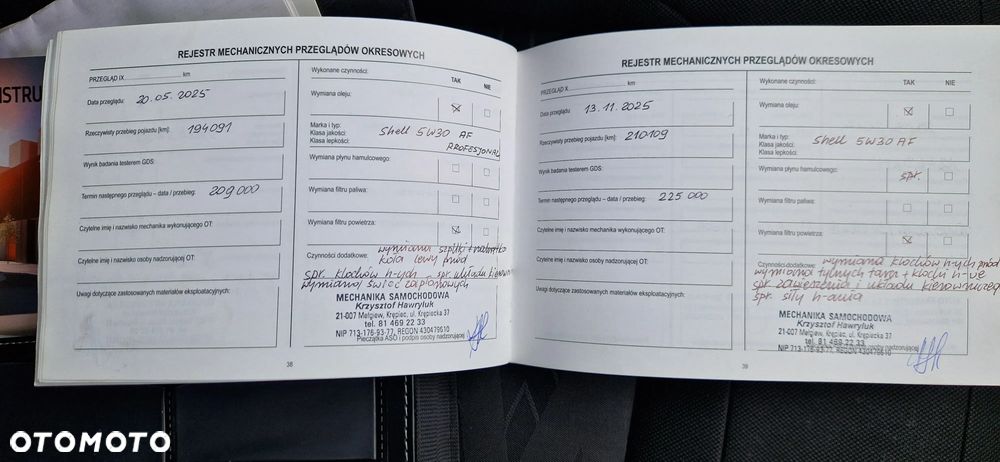 INSTRU
REJESTR MECHANICZNYCH PRZEGLĄDÓW OKRESOWYCH
PRZEGLĄD IX ........................ km
Data przeglądu: 20.05.2025
Rzeczywisty przebieg pojazdu [km]: 194091
Wynik badania testerem GDS:
Termin następnego przeglądu – data / przebieg: 209000
Czytelne imię i nazwisko mechanika wykonującego OT:
Czytelne imię i nazwisko osoby nadzorującej OT:
Uwagi dotyczące zastosowanych materiałów eksploatacyjnych:
Wykonane czynności: TAK NIE
Wymiana oleju:
Marka i typ: Shell 5W30 AF
Klasa jakości: PROFESJONAL
Klasa lepkości:
Wymiana płynu hamulcowego:
Wymiana filtru paliwa:
Wymiana filtru powietrza:
Czynności dodatkowe: wymiana szpilki + nakrętka
koła lewy przód
spr. klocków h-ych – spr układu kierown
wymiana świec zapłonowych
MECHANIKA SAMOCHODOWA
Krzysztof Hawryluk
21-007 Mełgiew, Krępiec, ul. Krępiecka 37
tel. 81 469 22 33
NIP 713-176-93-77, REGON 430479610
Pieczątka ASO i podpis osoby nadzorującej
38
REJESTR MECHANICZNYCH PRZEGLĄDÓW OKRESOWYCH
km
Data przeglądu: 13.11.2025
Rzeczywisty przebieg pojazdu [km]: 210109
Wynik badania testerem GDS:
Termin następnego przeglądu – data / przebieg: 225 000
Czytelne imię i nazwisko mechanika wykonującego OT:
Czytelne imię i nazwisko osoby nadzorującej OT:
Uwagi dotyczące zastosowanych materiałów eksploatacyjnych:
Wykonane czynności: TAK NIE
Wymiana oleju:
Marka i typ: Shell 5W30 AF
Klasa jakości:
Klasa lepkości:
Wymiana płynu hamulcowego: spr.
Wymiana filtru paliwa:
Wymiana filtru powietrza:
Czynności dodatkowe: wymiana klocków h-ych przód
wymiana tylnych tarcz + klocki h-ve
spr. zawieszenia i układu kierowniczego
spr. siły h-ania
MECHANIKA SAMOCHODOWA
Krzysztof Hawryluk
21-007 Mełgiew, Krępiec, ul. Krępiecka 37
tel. 81 469 22 33
NIP 713-176-93-77, REGON 430479610
Pieczątka ASO i podpis osoby nadzorującej
39
OTOMOTO